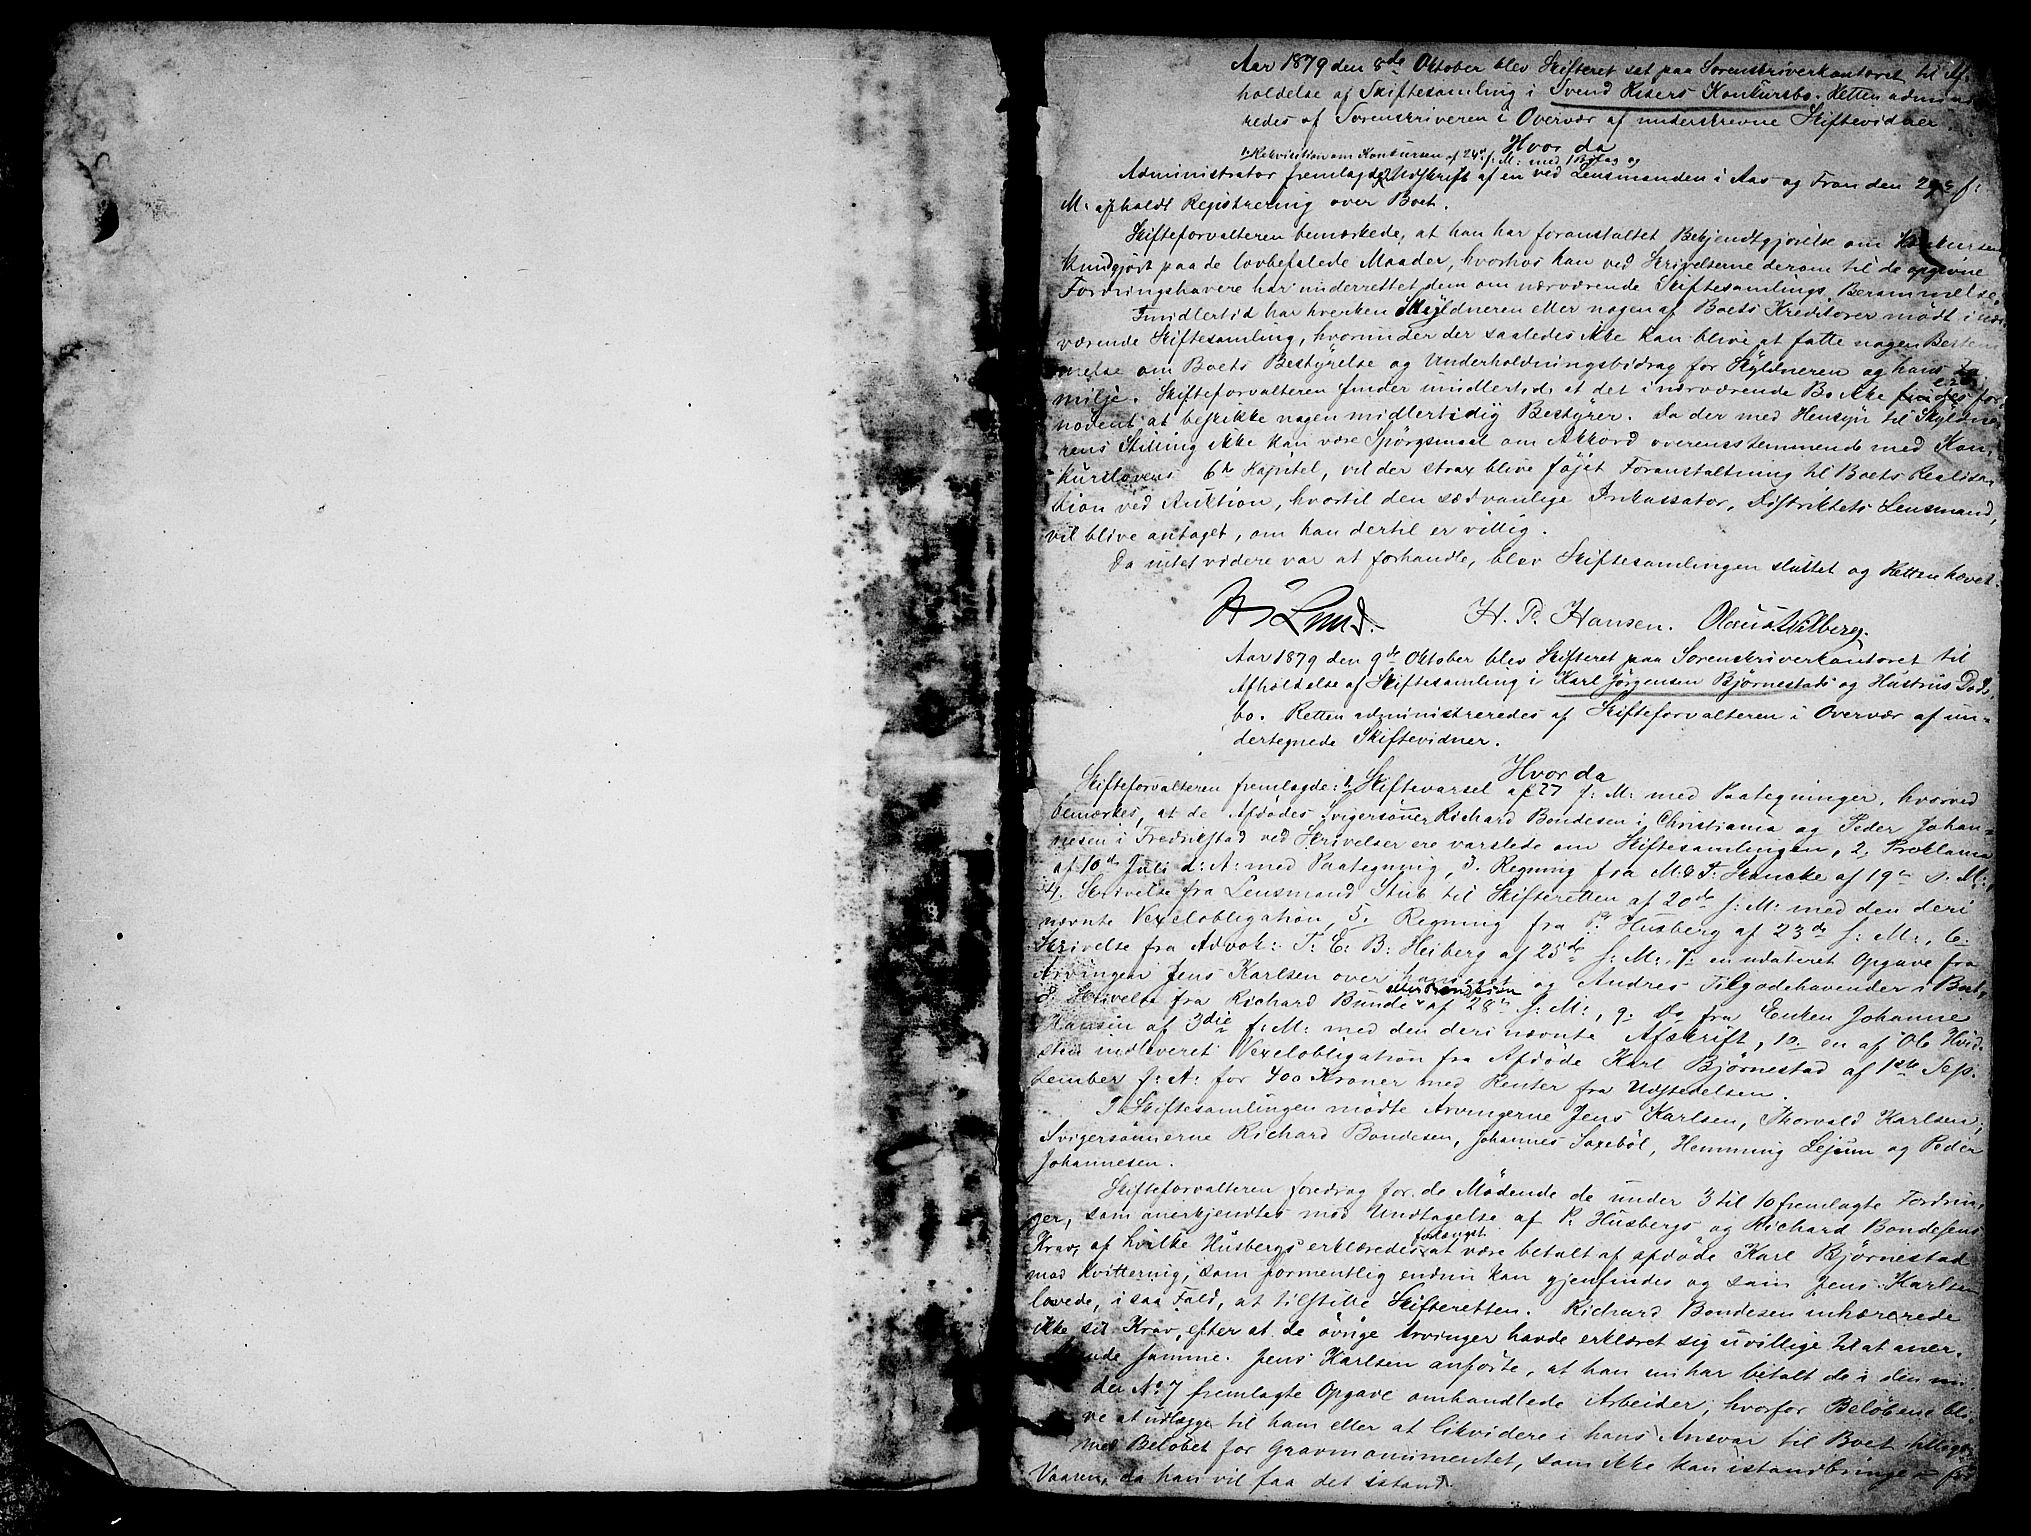 Aar 1879 den 8de Oktober blev Skifteret sat paa Sorenskriverkontoret til Af-
holdelse af Skiftesamling i Svend Kisers Konkursbo. Retten administ-
redes af Sorenskriveren i Overvær af underskrevne Skiftevidner.
Hvor da
1. Rekvisition om Konkursen af 24de f: M: med 1 Bilag og
Administrator fremlagde Udskrift af en ved Lensmanden i Aas og Fron den 29de f:
M: afholdt Registrering over Boet.
Skifteforvalteren bemærkede, at han har foranstaltet Bekjendtgjørelse om Konkursen
kundgjort paa de lovbefalede Maader, hvorhos han ved Skrivelserne derom til de opgivne
Fordringshavere har underrettet dem om nærværende Skiftesamlings Berammelse.
Imidlertid har hverken Skyldneren eller nogen af Boets Kreditorer mødt i nær-
værende Skiftesamling, hvorunder der saaledes ikke kan blive at fatte nogen Bestem-
melse om Boets Bestyrelse og Underholdningsbidrag for Skyldneren og hans Fa-
milje. Skifteforvalteren finder imidlertid, at det i nærværende Bo ikke er for-
nødent at beskikke nogen midlertidig Bestyrer. Da der med Hensyn til Skyldne-
rens Stilling ikke kan være Spørgsmaal om Akkord overensstemmende med Kon-
kurslovens 6te Kapitel, vil der strax blive føjet Foranstaltning til Boets Realisa-
tion ved Auktion, hvortil den sædvanlige Inkassator, Distriktets Lensmand,
vil blive antaget, om han dertil er villig.
Da intet videre var at forhandle, blev Skiftesamlingen sluttet og Retten hævet.
Lund. H. P. Hansen. Olaus Wilberg.
Aar 1879 den 9de Oktober blev Skifteret paa Sorenskriverkontoret til
Afholdelse af Skiftesamling i Karl Jørgensen Bjørnestads og Hustrus Døds-
bo. Retten administreredes af Skifteforvalteren i Overvær af un-
dertegnede Skiftevidner.
Hvor da
Skifteforvalteren fremlagde: 1, Skiftevarsel af 27 f: M: med Paategninger, hvorved
bemærkes, at de Afdødes Svigersønner Richard Bondesen i Christiania og Peder Johan-
nesen i Fredrikstad ved Skrivelser ere varslede om Skiftesamlingen, 2, Proklama
af 10de Juli d: A: med Paategning, 3. Regning fra M. & T. Hancke af 19de s: M:,
4. Skrivelse fra Lensmand Stub til Skifteretten af 20de f: M: med den deri
nævnte Vexelobligation, 5. Regning fra P. Husberg af 23de f: M:, 6.
Skrivelse fra Advok: T: E: B: Heiberg af 25de f: M:, 7. en udateret Opgave fra
Arvingen Jens Karlsen over hans eget og Andres Tilgodehavender i Boet,
8. Skrivelse fra Richard Bunde af 28de f: M:, 9. Do fra Enken Johanne
Hansen af 3die f: M: med den deri nævnte Afskrift, 10. en af Ole Hvid-
sten indleveret Vexelobligation fra Afdøde Karl Bjørnestad af 1ste Sep-
tember f: A: for 400 Kroner med Renter fra Udstedelsen.
I Skiftesamlingen mødte Arvingerne Jens Karlsen, Thorvald Karlsen,
Svigersønnerne Richard Bondesen, Johannes Saxebøl, Hemming Lejum og Peder
Johannesen.
Skifteforvalteren foredrog for de Mødende de under 3 til 10 fremlagte Fordrin-
ger, som anerkjendtes med Undtagelse af P. Husbergs og Richard Bondesens
Krav, af hvilke Husbergs erklæredes forlængst at være betalt af afdøde Karl Bjørnestad
mod Kvittering, som formentlig endnu kan gjenfindes og som Jens Karlsen
lovede, i saa Fald, at tilstille Skifteretten. Richard Bondesen inhærerede
ikke sit Krav, efter at de øvrige Arvinger havde erklæret sig uvillige til at aner-
kjende samme. Jens Karlsen anførte, at han ei har betalt de i den un-
der No 7 fremlagte Opgave omhandlede Arbeider, hvorfor Beløbene bli-
ve at udlægge til ham eller at likvidere i hans Ansvar til Boet tilligemed
med Beløbet for Gravmonumentet, som ikke kan istandbringes før
Vaaren, da han vil faa det istand.